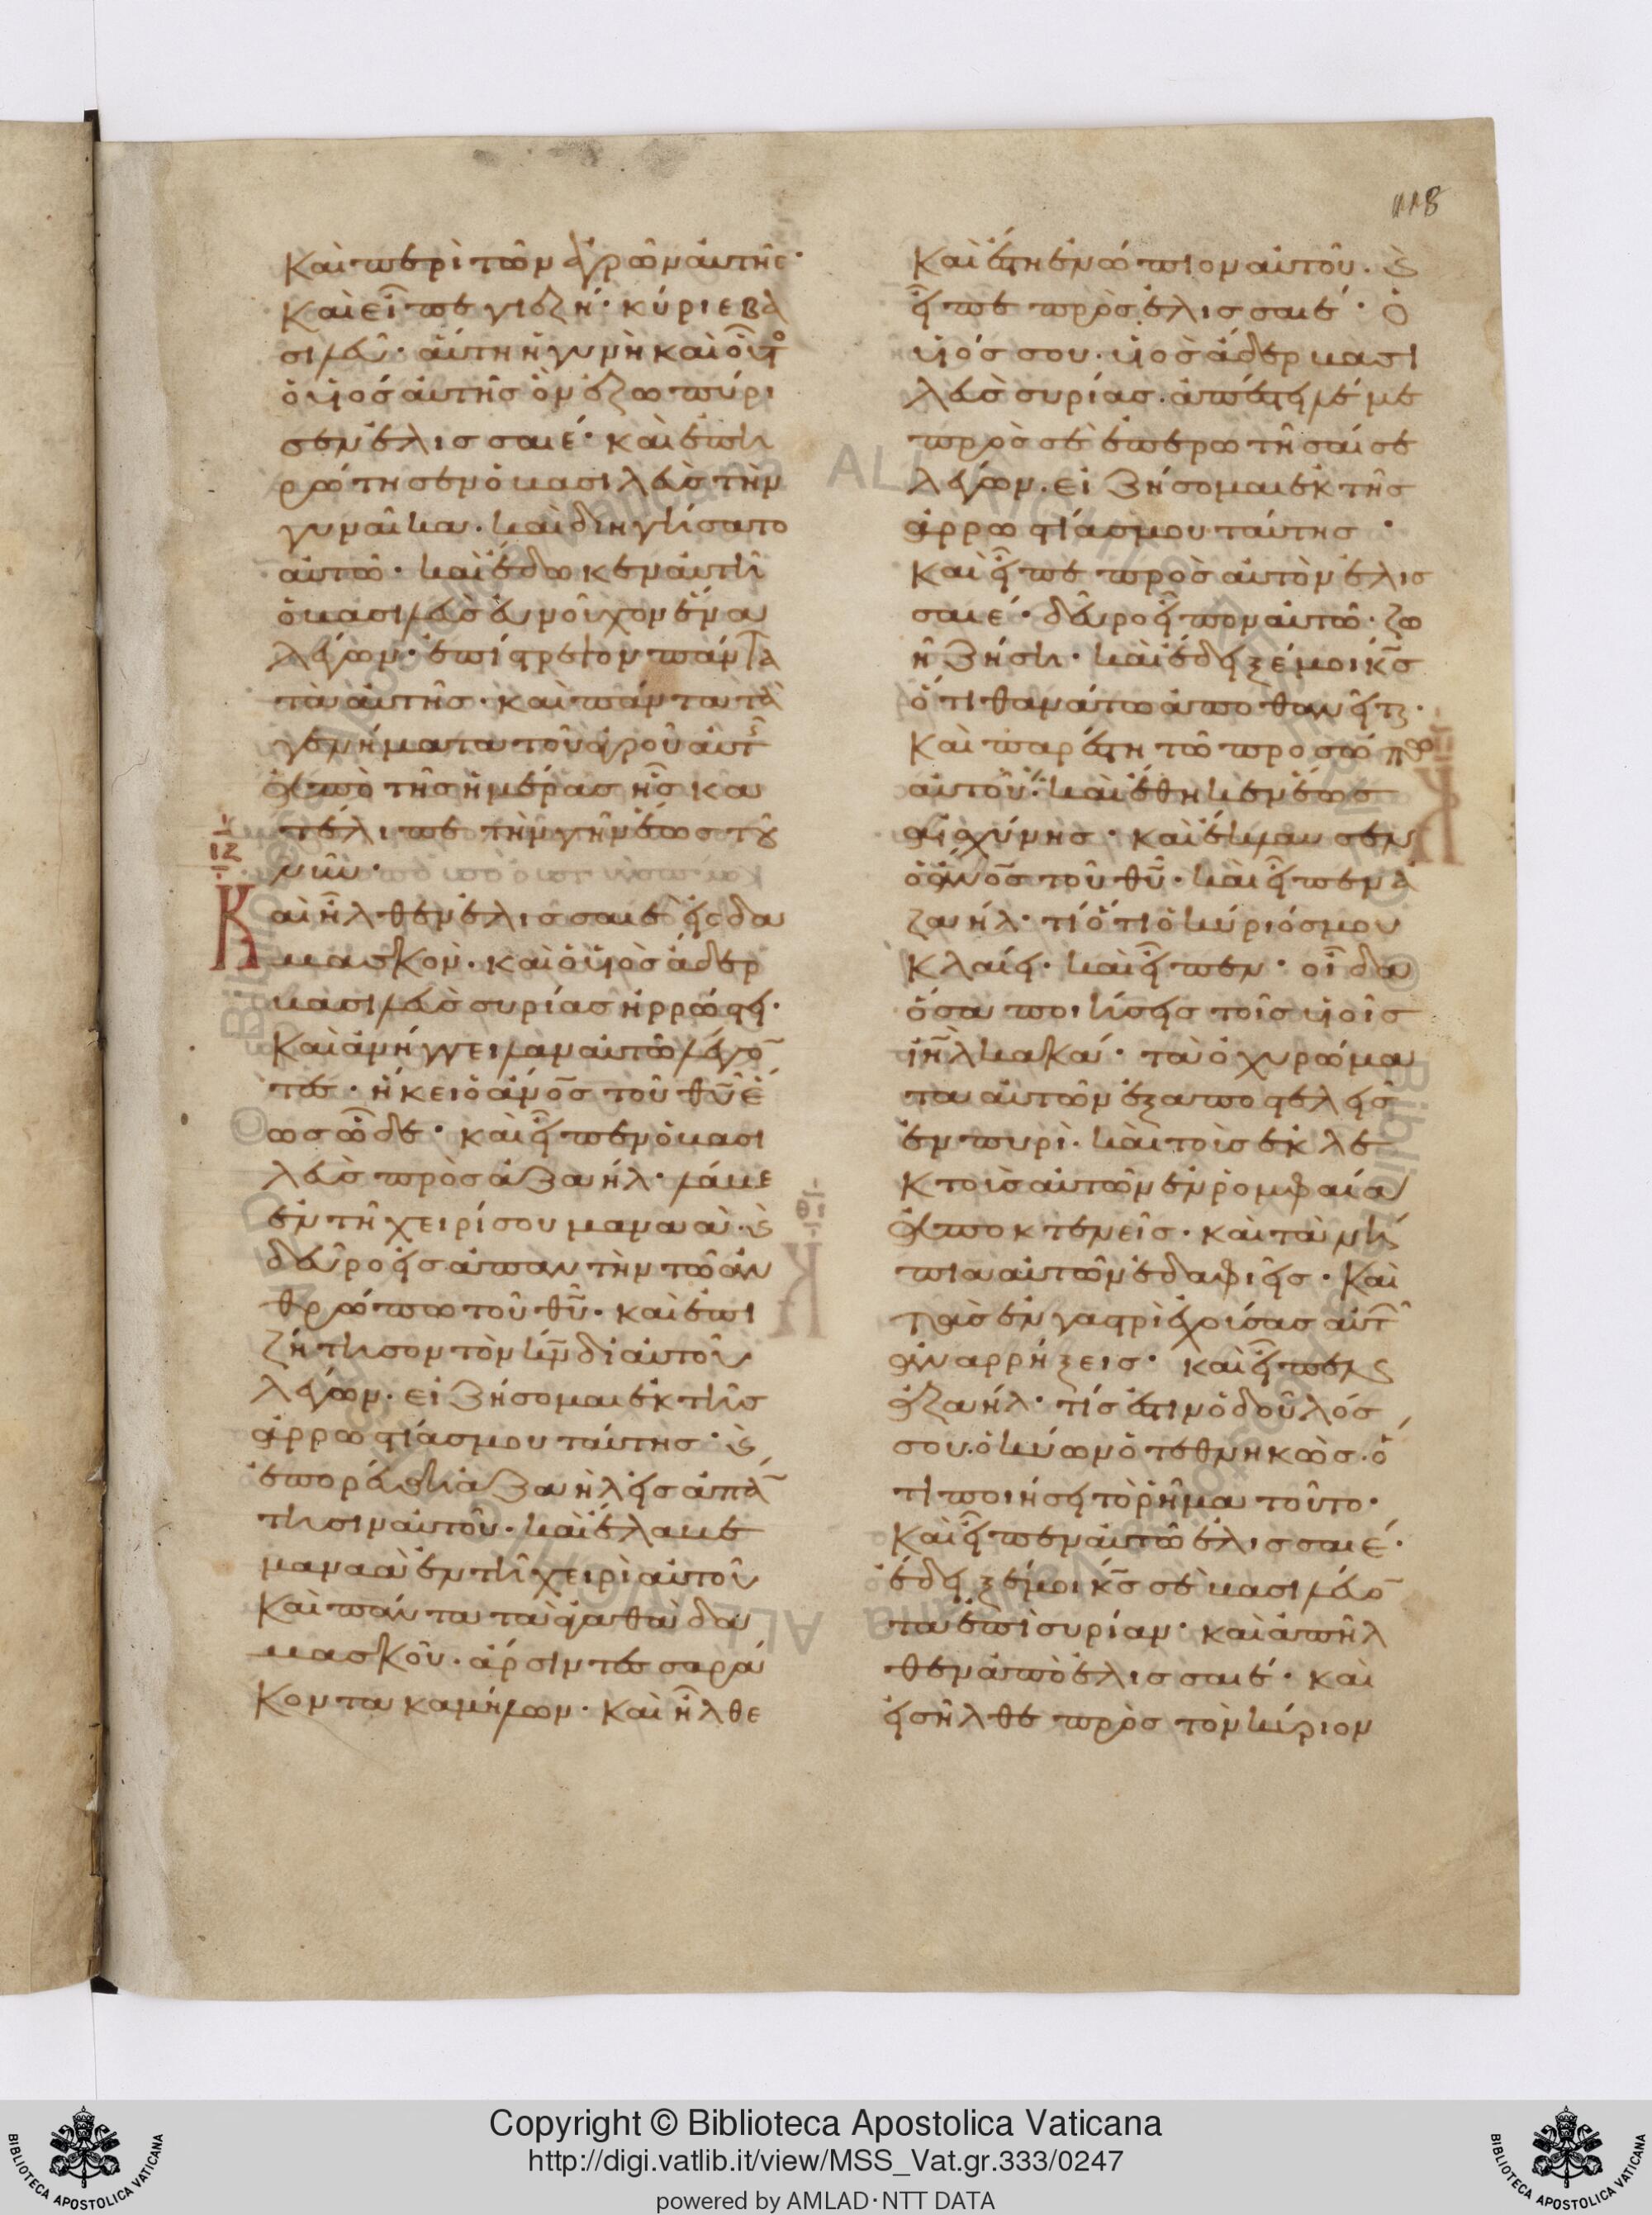 118
καὶ περὶ τῶν ἀγρῶν αὐτῆς·
καὶ εἶπε γιεζή· κύριε βα
σιλεῦ· αὕτη ἡ γυνὴ καὶ οὗτο
ὁ υἱὸς αὐτῆς ὃν ἐζωπύρι
σεν ἐλισσαιέ· καὶ ἐπη
ρώτησεν ὁ βασιλεὺς τὴν
γυναῖκα. καὶ διηγήσατο
αὐτῶ· καὶ ἔδωκεν αὐτῆ
ὁ βασιλεὺς εὐνοῦχον ἕνα
λέγων· ἐπίστρεψον πάντα
τὰ αὐτῆς· καὶ πάντα τὰ
γενήματα τοῦ ἀγροῦ αὐτῆς
ἀπὸ τῆς ἡμέρας ἧς κα
τέλιπε τὴν γῆν ἕως τοῦ
νῦν·
ιζ
Καὶ ἦλθεν ἐλισσαιὲ εἰς δα
μασκόν. καὶ ὁ υἱὸς ἄδερ
βασιλεὺς συρίας ἠρρώστει·
καὶ ἀνήγγειλαν αὐτῶ λέγο̄
τες· ἥκει ὁ ἄνο̄ς τοῦ θῡ ἕ
ως ὧδε· καὶ εἶπεν ὁ βασι
λεὺς πρὸς ἀζαήλ· λάβε
ἐν τῆ χειρί σου μαναὰ· ϗ
δεῦρο εἰς ἀπαντὴν τῶ ἀν
θρώπω τοῦ θῡ· καὶ ἐπι
ζήτησον τὸν κν̄ δι' αὐτοῦ
λέγων· εἰ ζήσομαι ἐκ τῆς
ἀρρωστίας μου ταύτης· ϗ
ἐπορεύθη ἀζαὴλ εἰς ἀπά̄
τησιν αὐτοῦ· καὶ ἔλαβε
μαναὰ ἐν τῆ χειρὶ αὐτοῦ
καὶ πάντα τὰ ἀγαθὰ δα
μασκοῦ. ἄρσιν τεσσαρά
κοντα καμήλων· καὶ ἦλθε
καὶ ἔστη ἐνώπιον αὐτοῦ. ϗ
εἶπε πρὸς ἐλισσαιέ· ὁ
υἱός σου. υἱὸς ἄδερ βασι
λεὺς συρίας. ἀπέστειλέ με
πρὸς σὲ ἐπερωτῆσαί σε
λέγων. εἰ ζήσομαι ἐκ τῆς
ἀρρωστίας μου ταύτης·
καὶ εἶπε πρὸς αὐτὸν ἐλισ
σαιέ· δεῦρο εἶπον αὐτῶ· ζω
ῆ ζήση· καὶ ἔδειξέ μοι κς̄
ὅτι θανάτω ἀποθανεῖται.
ιη
Καὶ παρέστη τῶ προσώπω
αὐτοῦ· καὶ ἔθηκεν ἕως
αἰσχύνης· καὶ ἔκλαυσεν
ὁ ἄνο̄ς τοῦ θῡ· καὶ εἶπεν ἀ
ζαήλ· τί ὅτι ὁ κύριός μου
κλαίει· καὶ εἶπεν· οἶδα
ὅσα ποιήσεις τοῖς υἱοῖς
ιη̄λ κακά· τὰ ὀχυρώμα
τα αὐτῶν ἐξαποστελεῖς
ἐν πυρί. καὶ τοὺς ἐκλε
κτοὺς αὐτῶν ἐν ρομφαία
ἀποκτενεῖς· καὶ τὰ νή
πια αὐτῶν ἐδαφιεῖς· καὶ
τὰς ἐν γαστρὶ ἐχούσας αὐτῶ
ἀναρρήξεις· καὶ εἶπεν
ἀζαήλ· τίς ἐστιν ὁ δοῦλός
σου. ὁ κύων ὁ τεθνηκὼς. ὅ
τι ποιήσει τὸ ρῆμα τοῦτο·
καὶ εἶπεν αὐτῶ ἐλισσαιέ·
ἔδειξέν μοι κς̄ σὲ βασιλεύο̄
τα ἐπὶ συρίαν· καὶ ἀπῆλ
θεν ἀπὸ ἐλισσαιέ· καὶ
εἰσῆλθε πρὸς τὸν κύριον
Copyright © Biblioteca Apostolica Vaticana
http://digi.vatlib.it/view/MSS_Vat.gr.333/0247
powered by AMLAD·NTT DATA
BIBLIOTECA APOSTOLICA VATICANA
BIBLIOTECA APOSTOLICA VATICANA